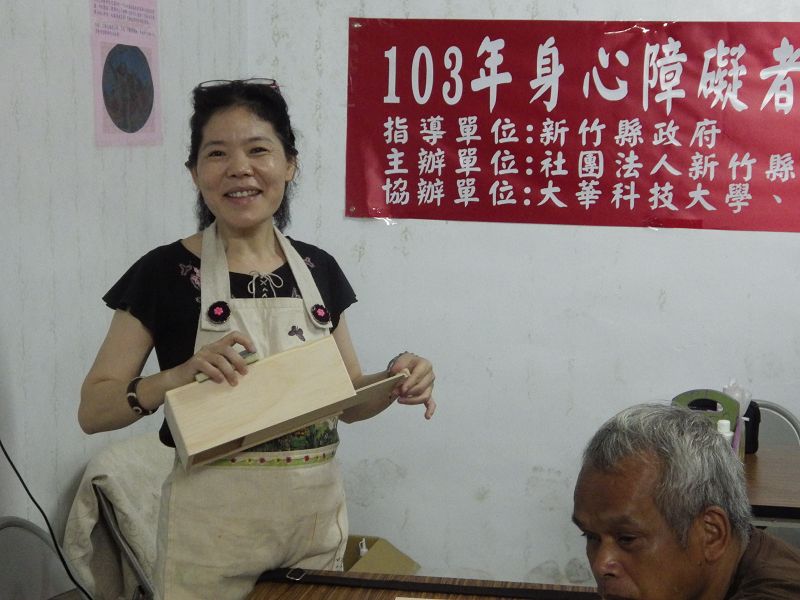 103年身心障礙者
指導單位:新竹縣政府
主辦單位:社團法人新竹縣
協辦單位:大華科技大學、